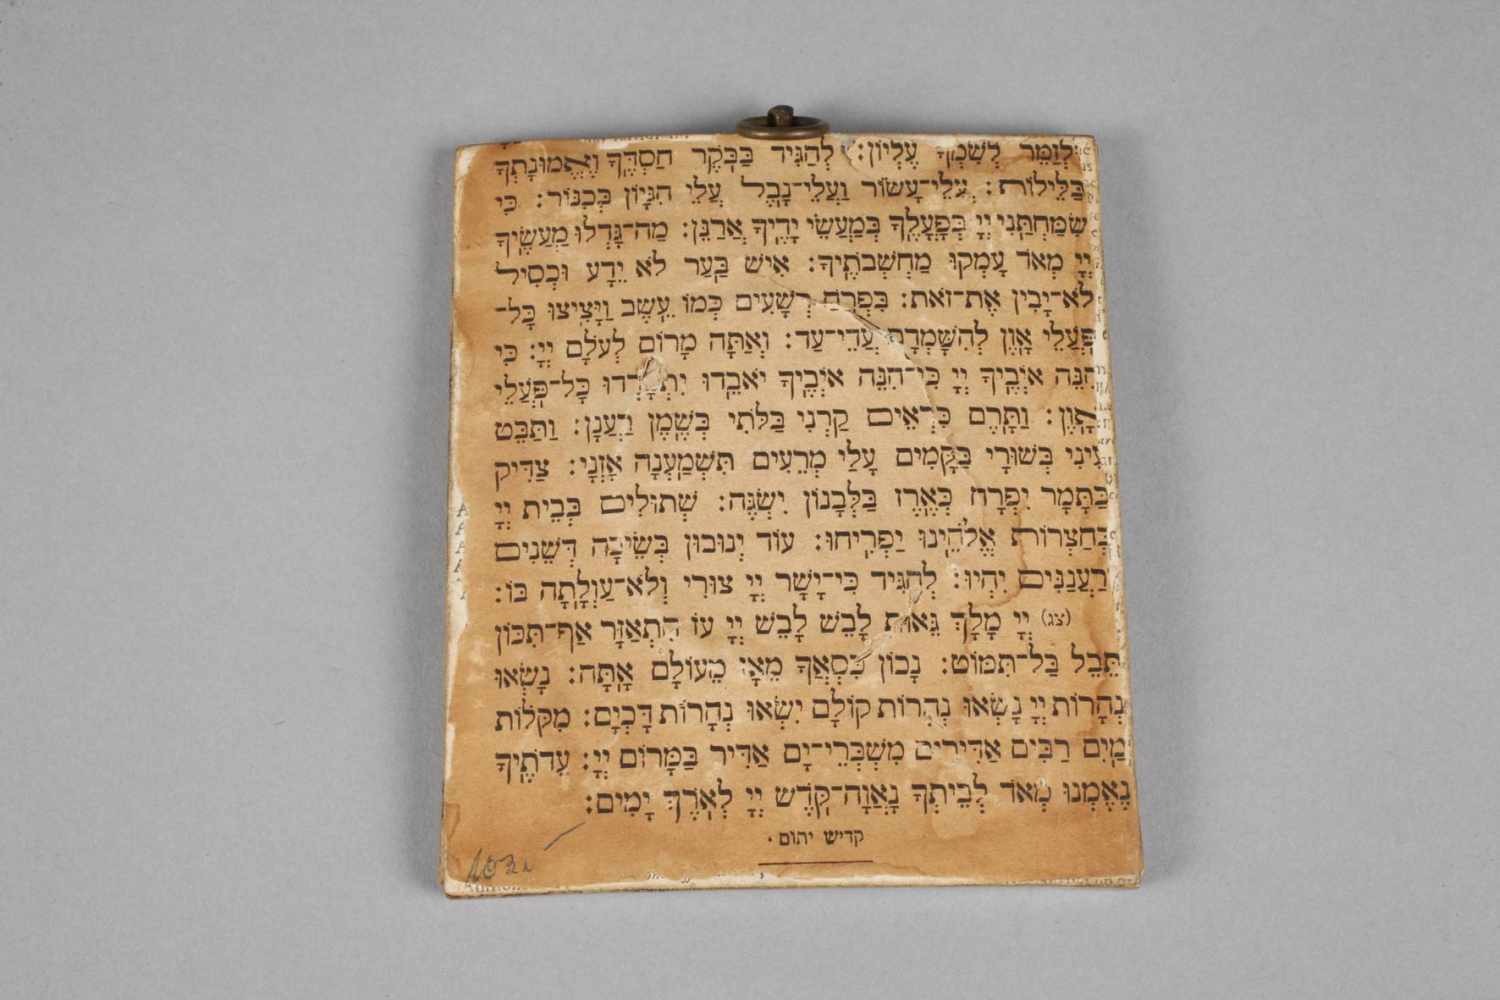 לְזַמֵּר לְשִׁמְךָ עֶלְיוֹן: לְהַגִּיד בַּבֹּקֶר חַסְדֶּךָ וֶאֱמוּנָתְךָ
בַּלֵּילוֹת: עֲלֵי־עָשׂוֹר וַעֲלֵי־נָבֶל עֲלֵי הִגָּיוֹן בְּכִנּוֹר: כִּי
שִׂמַּחְתַּנִי יְיָ בְּפָעֳלֶךָ בְּמַעֲשֵׂי יָדֶיךָ אֲרַנֵּן: מַה־גָּדְלוּ מַעֲשֶׂיךָ
יְיָ מְאֹד עָמְקוּ מַחְשְׁבֹתֶיךָ: אִישׁ בַּעַר לֹא יֵדָע וּכְסִיל
לֹא־יָבִין אֶת־זֹאת: בִּפְרֹחַ רְשָׁעִים כְּמוֹ עֵשֶׂב וַיָּצִיצוּ כָּל־
פֹּעֲלֵי אָוֶן לְהִשָּׁמְדָם עֲדֵי־עַד: וְאַתָּה מָרוֹם לְעֹלָם יְיָ: כִּי
הִנֵּה אֹיְבֶיךָ יְיָ כִּי־הִנֵּה אֹיְבֶיךָ יֹאבֵדוּ יִתְפָּרְדוּ כָּל־פֹּעֲלֵי
אָוֶן: וַתָּרֶם כִּרְאֵים קַרְנִי בַּלֹּתִי בְּשֶׁמֶן רַעֲנָן: וַתַּבֵּט
עֵינִי בְּשׁוּרָי בַּקָּמִים עָלַי מְרֵעִים תִּשְׁמַעְנָה אָזְנָי: צַדִּיק
כַּתָּמָר יִפְרָח כְּאֶרֶז בַּלְּבָנוֹן יִשְׂגֶּה: שְׁתוּלִים בְּבֵית יְיָ
בְּחַצְרוֹת אֱלֹהֵינוּ יַפְרִיחוּ: עוֹד יְנוּבוּן בְּשֵׂיבָה דְּשֵׁנִים
וְרַעֲנַנִּים יִהְיוּ: לְהַגִּיד כִּי־יָשָׁר יְיָ צוּרִי וְלֹא־עַוְלָתָה בּוֹ:
(צג) יְיָ מָלָךְ גֵּאוּת לָבֵשׁ לָבֵשׁ יְיָ עֹז הִתְאַזָּר אַף־תִּכּוֹן
תֵּבֵל בַּל־תִּמּוֹט: נָכוֹן כִּסְאֲךָ מֵאָז מֵעוֹלָם אָתָּה: נָשְׂאוּ
נְהָרוֹת יְיָ נָשְׂאוּ נְהָרוֹת קוֹלָם יִשְׂאוּ נְהָרוֹת דָּכְיָם: מִקֹּלוֹת
מַיִם רַבִּים אַדִּירִים מִשְׁבְּרֵי־יָם אַדִּיר בַּמָּרוֹם יְיָ: עֵדֹתֶיךָ
נֶאֶמְנוּ מְאֹד לְבֵיתְךָ נָאֲוָה־קֹדֶשׁ יְיָ לְאֹרֶךְ יָמִים:
קדיש יתום.